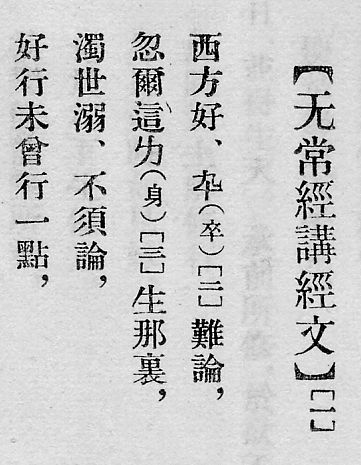 【无常經講經文】[一]
西方好、(卒)[二]難論，
忽爾這(身)[三]生那裏，
濁世溺、不須論，
好行未曾行一點，